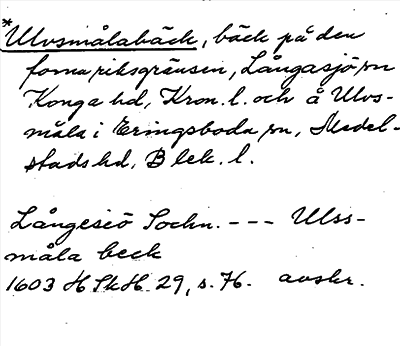 *Ulvsmålabäck, bäck på den
forna riksgränsen, Långasjö sn
Konga hd, Kron. l. och å Ulvs-
måla i Eringsboda sn, Medel-
stads hd, Blek. l.
Långeseö Sochn. --- Ulss-
måla beck
1603 HSkH. 29, s. 76. avskr.